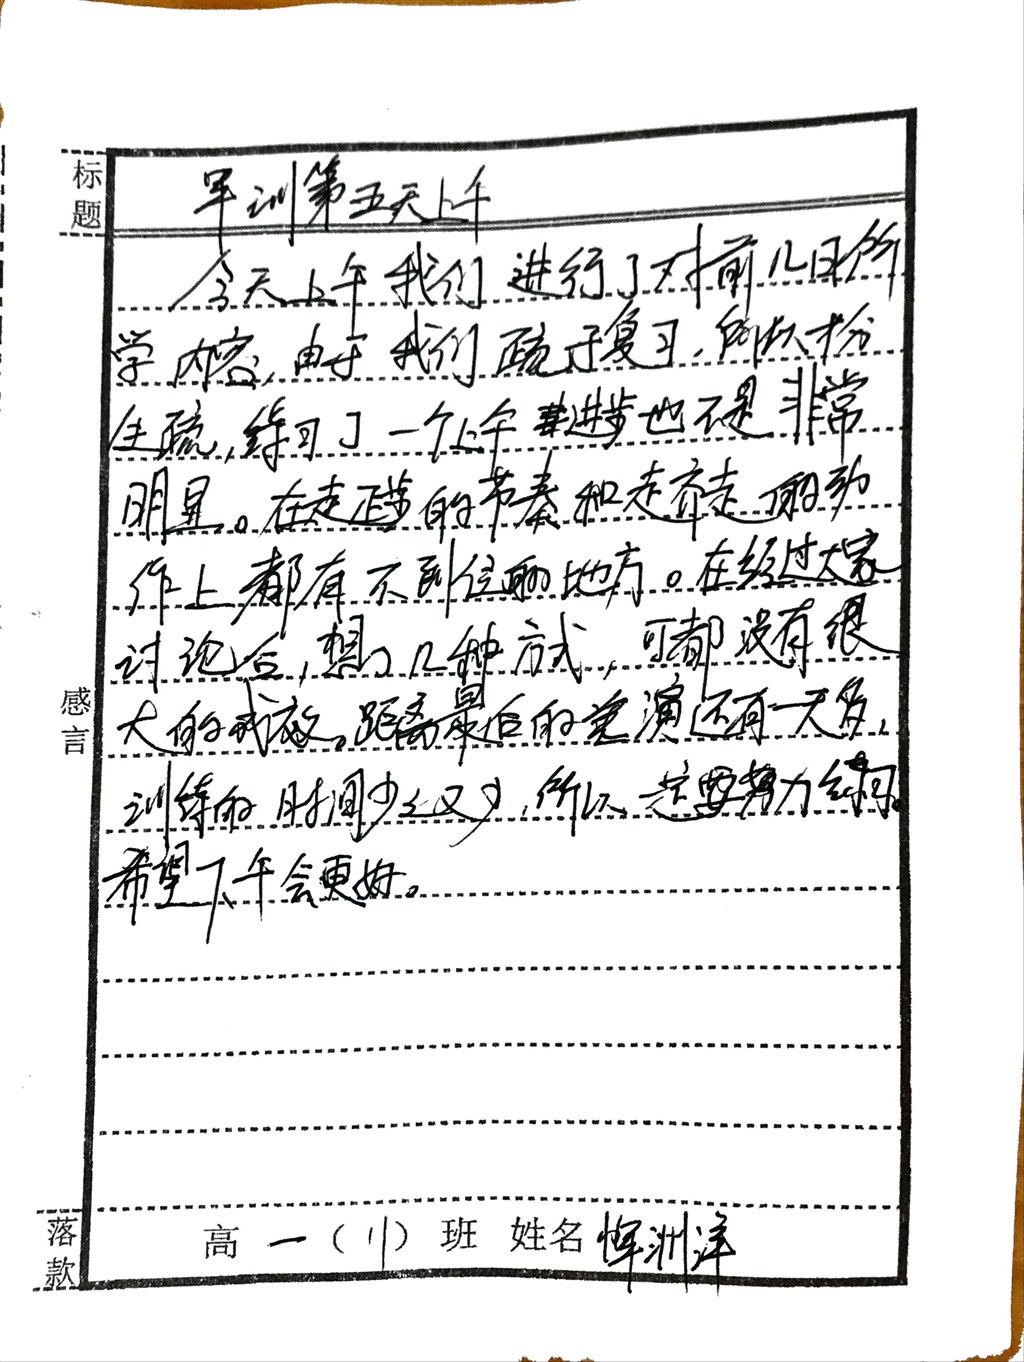 标题
军训第五天上午
今天上午我们进行了对前几日所
学内容,由于我们疏于复习,所以十分
生疏,练习了一个上午进步也不是非常
明显。在走正步的节奏和走齐走的动
作上都有不到位的地方。在经过大家
讨论后,想了几种方式,可都没有很
大的成效。距离最后的会演还有一天多,
训练的时间少之又少,所以一定要努力练习。
希望下午会更好。
感言
落款
高一(11)班 姓名 恽洲洋